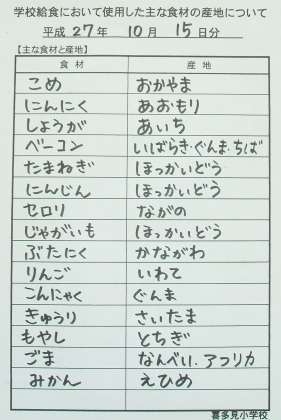 学校給食において使用した主な食材の産地について
平成 27 年 10 月 15 日分
【主な食材と産地】
食材 産地
こめ おかやま
にんにく あおもり
しょうが あいち
ベーコン いばらき・ぐんま・ちば
たまねぎ ほっかいどう
にんじん ほっかいどう
セロリ ながの
じゃがいも ほっかいどう
ぶたにく かながわ
りんご いわて
こんにゃく ぐんま
きゅうり さいたま
もやし とちぎ
ごま なんべい、アフリカ
みかん えひめ
喜多見小学校